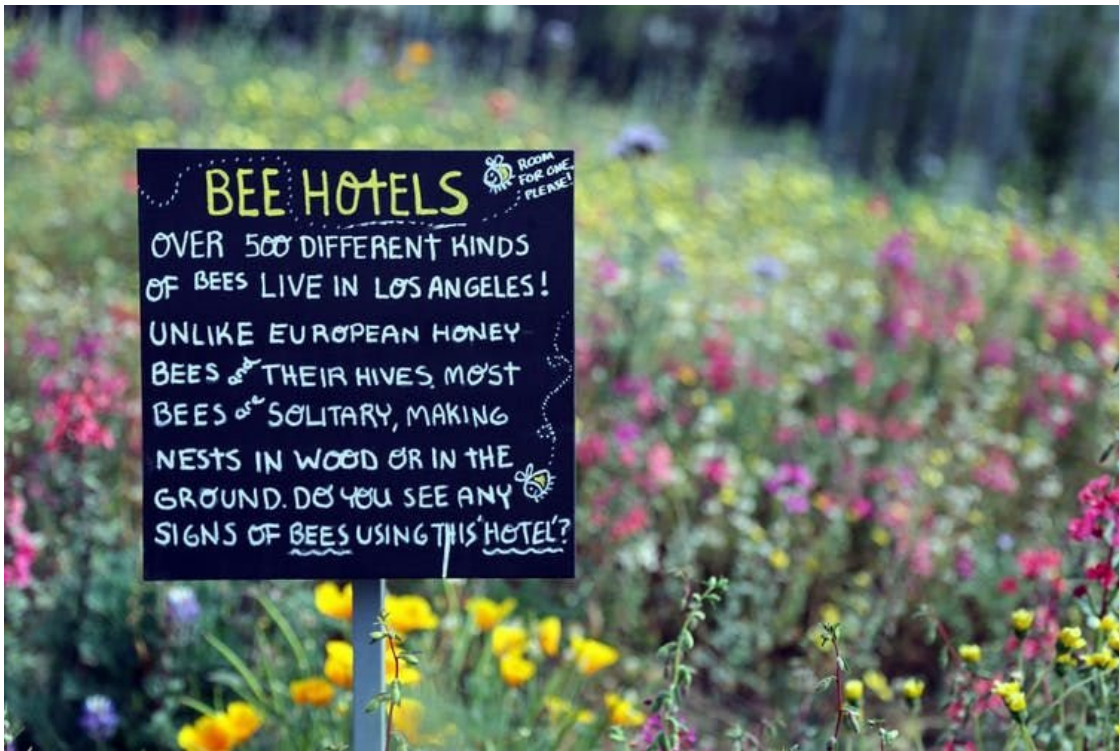 BEE HOTELS
ROOM
FOR ONE,
PLEASE!
OVER 500 DIFFERENT KINDS
OF BEES LIVE IN LOS ANGELES!
UNLIKE EUROPEAN HONEY
BEES and THEIR HIVES, MOST
BEES are SOLITARY, MAKING
NESTS IN WOOD OR IN THE
GROUND. DO YOU SEE ANY
SIGNS OF BEES USING THIS 'HOTEL'?